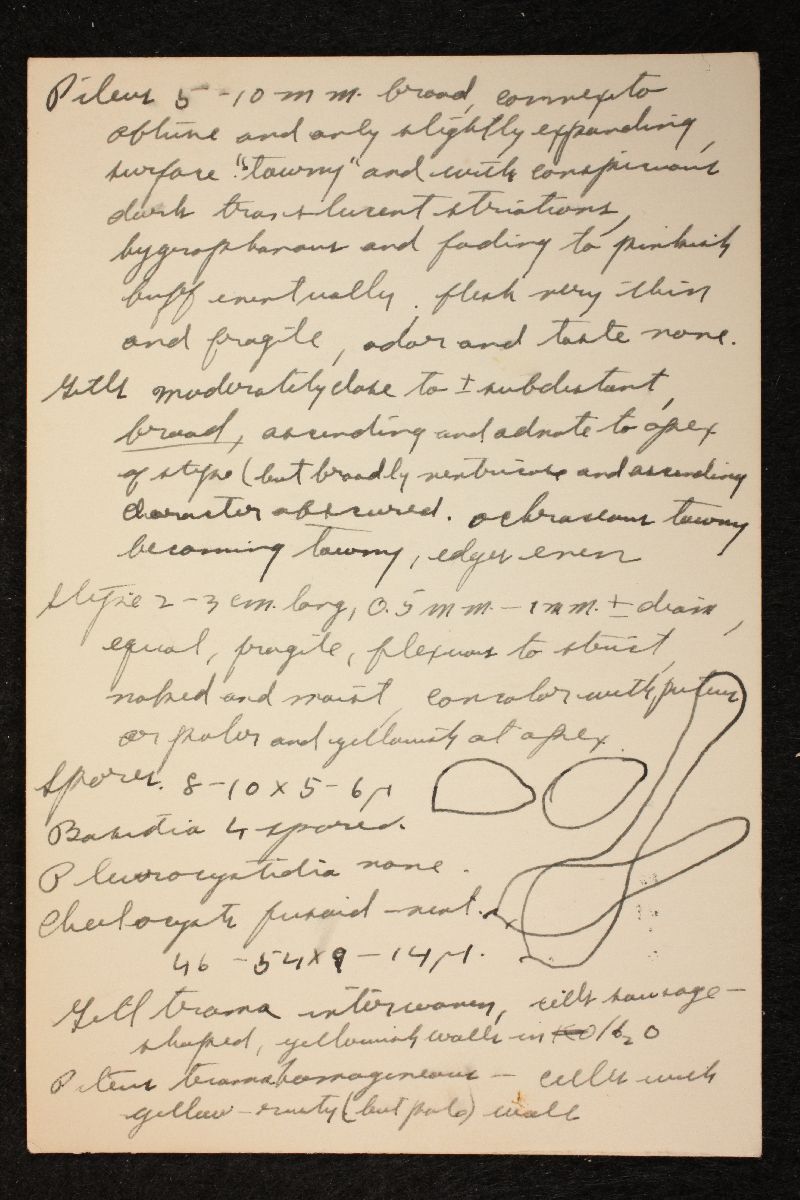 Pileus 5 - 10 mm. broad, convex to
obtuse and only slightly expanding,
surface "tawny" and with conspicuous
dark translucent striations,
hygrophanous and fading to pinkish
buff eventually; flesh very thin
and fragile, odor and taste none.
Gills moderately close to ± subdistant,
broad, ascending and adnate to apex
of stipe (but broadly ventricose and ascending
character obscured. ochraceous tawny
becoming tawny, edges even
Stipe 2 - 3 cm. long, 0.5 mm. - 1 mm. ± diam,
equal, fragile, flexuous to strict,
naked and moist, concolor with pileus
or paler and yellowish at apex.
Spores. 8 - 10 x 5 - 6 μ
Basidia 4 spored.
Pleurocystidia none.
Cheilocysts fusoid - vent.
46 - 54 x 9 - 14 μ.
Gill trama interwoven, cells sausage-
shaped, yellowish walls in H2O
Pileus trama homogeneous - cells with
yellow - rusty (but pale) wall